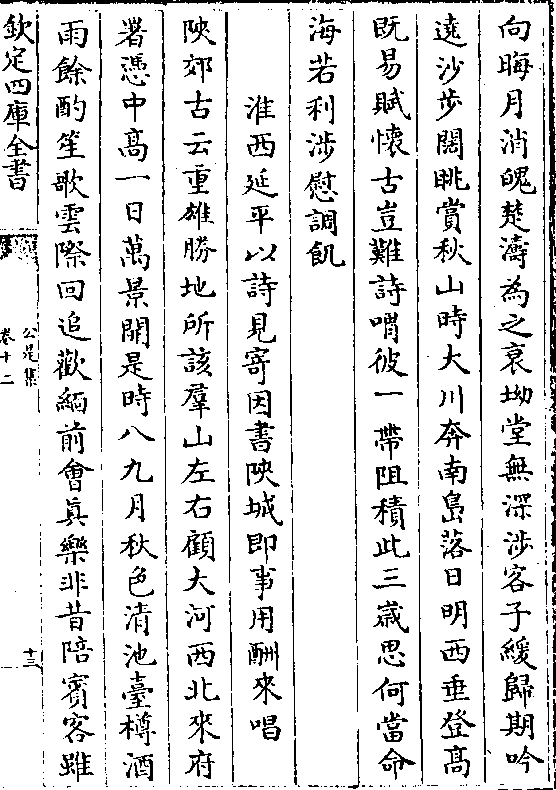 向晦月消魄楚濤為之衰坳堂無深涉客子緩歸期吟
遶沙步闊眺賞秋山時大川奔南島落日明西垂登高
既易賦懷古豈難詩喟彼一帶阻積此三歲思何當命
海若利涉慰調飢
淮西延平以詩見寄因書陜城即事用酬來唱
陜郊古云重雄勝地所該羣山左右顧大河西北來府
署憑中高一日萬景開是時八九月秋色清池臺樽酒
雨餘酌笙歌雲際回追歡緬前會真樂非昔陪賓客雖
欽定四庫全書
公是集
卷十二
十三